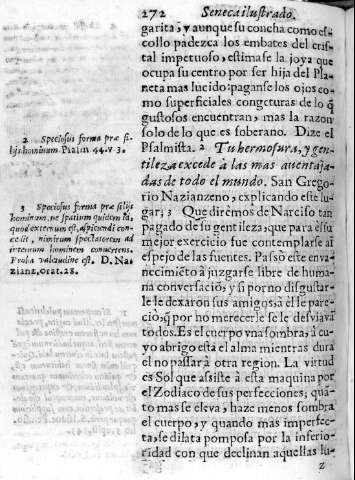 272 Seneca ilustrado.
garita; y aunque su concha como es-
collo padezca los embates del cris-
tal impetuoso, estimase la joya que
ocupa su centro por ser hija del Pla-
neta mas lucido: paganse los ojos co-
mo superficiales congeturas de lo q̃
gustosos encuentran, mas la razon
solo de lo que es soberano. Dize el
Psalmista. 2 Tu hermosura, y gen-
tileza excede à las mas auentaja-
das de todo el mundo. San Grego-
rio Nazianzeno, explicando este lu-
gar; 3 Que dirèmos de Narciso tan
pagado de su gentileza, que para èl su
mejor exercicio fue contemplarse al
espejo de las fuentes. Passò este enva-
necimiẽto à juzgarse libre de huma-
na conversaciõ, y si porno disgustar-
le le dexaron sus amigos, à èl le pare-
ciò, q̃ por no merecerle se le desviavã
todos. Es el cuerpo vna sombra, à cu-
yo abrigo està el alma mientras dura
el no passar à otra region. La virtud
es Sol que assiste à esta maquina por
el Zodiaco de sus perfecciones; quã-
to mas se eleva, haze menos sombra
el cuerpo, y quando mas imperfec-
ta, se dilata pomposa por la inferio-
ridad con que declinan aquellas lu-
z
2 Speciosus forma præ fi-
lijs hominum. Psalm. 44. v. 3.
3 Speciosus forma præ filijs
hominum, ne spatium quidem id,
quod externum est, aspiciundi con-
cedit, nimirum spectatorem ad
internum hominem conuertens,
Proba valetudine est. D. Na-
zianz. orat. 28.